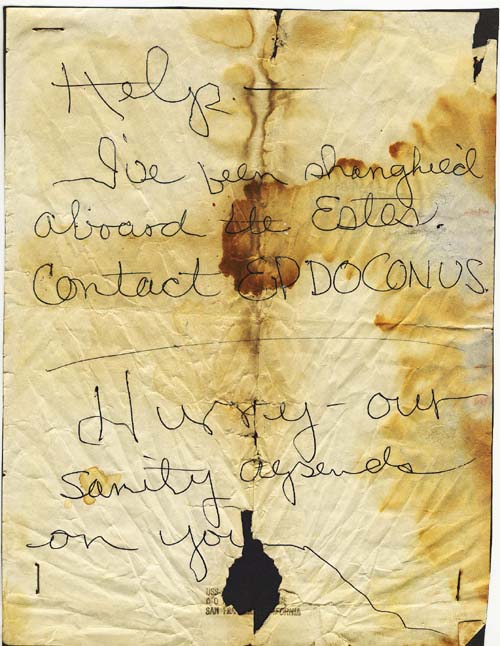 Help. —
I've been shanghied
aboard the Estes.
Contact EPDOCONUS.
Hurry - our
sanity depends
on you
USS
SAN